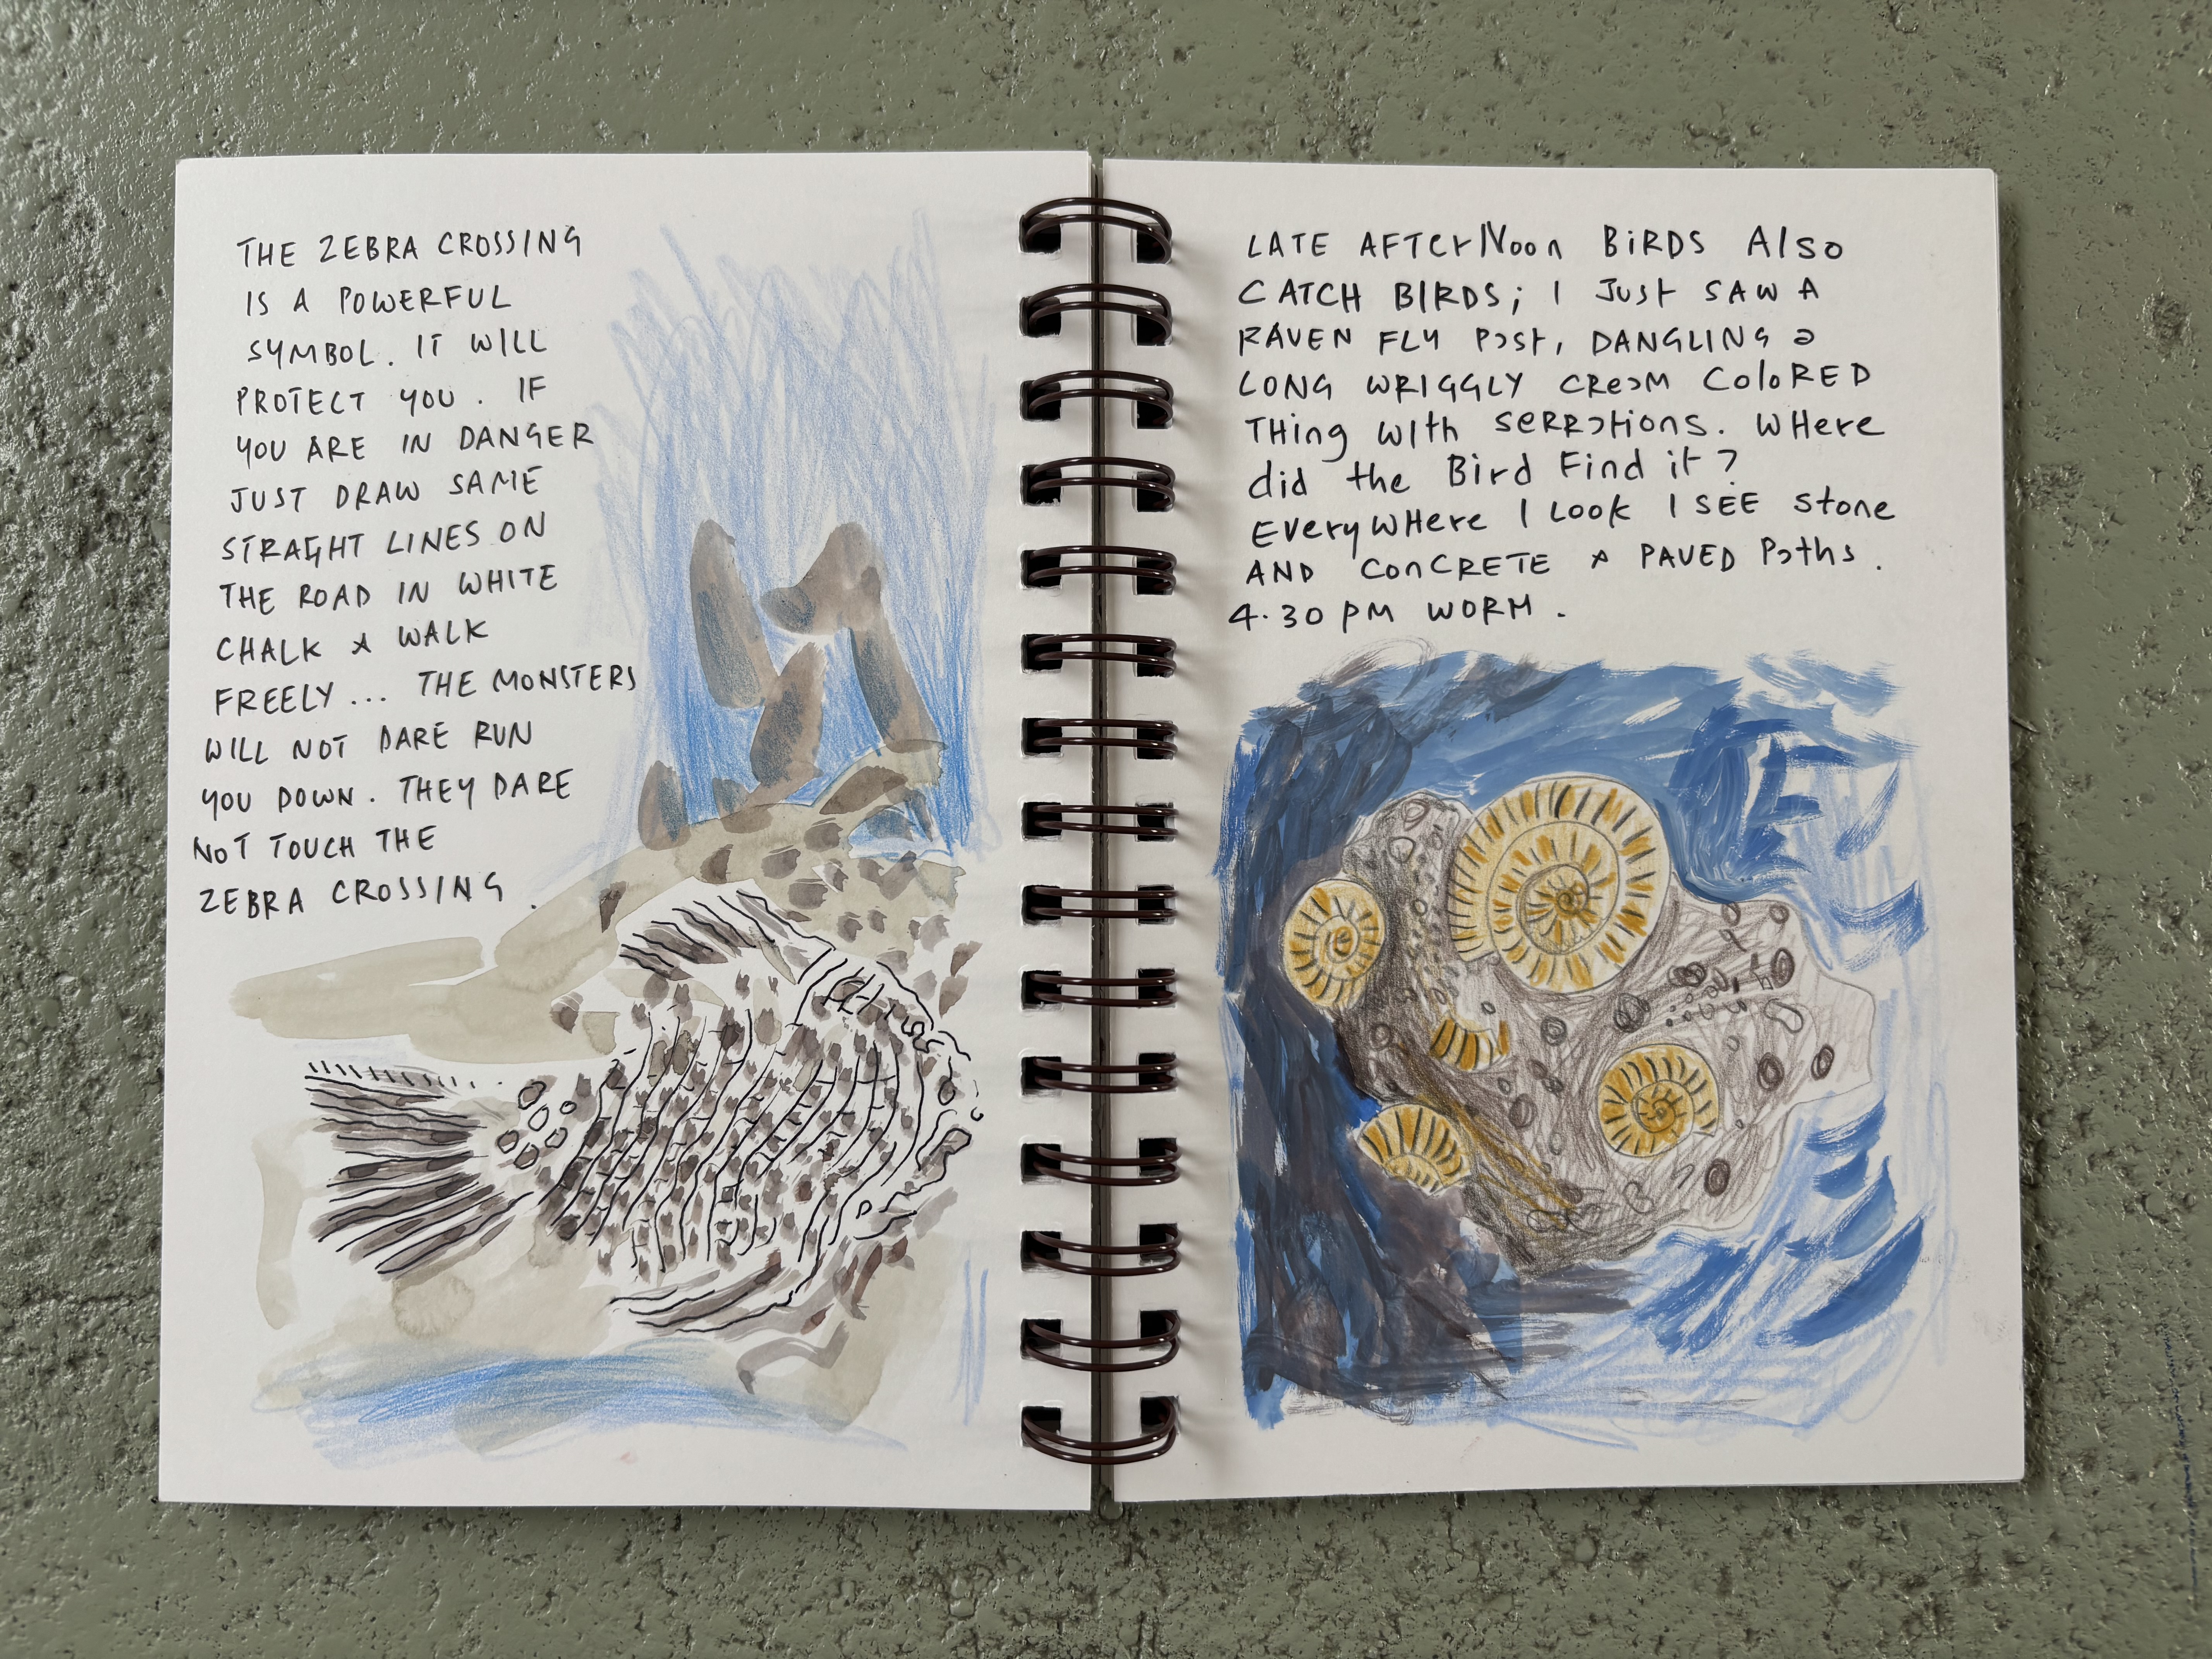 THE ZEBRA CROSSING
IS A POWERFUL
SYMBOL. IT WILL
PROTECT YOU. IF
YOU ARE IN DANGER
JUST DRAW SAME
STRAGHT LINES ON
THE ROAD IN WHITE
CHALK & WALK
FREELY... THE MONSTERS
WILL NOT DARE RUN
YOU DOWN. THEY DARE
NOT TOUCH THE
ZEBRA CROSSING.
LATE AFTErNoon BiRDS Also
CATCH BIRDS; I JUSt SAW A
RAVEN FLY Past, DANGLING a
LONG WRIGGLY CReaM ColoRED
THing WIth SeRRations. WHere
did the Bird Find it?
EveryWHere I Look I SEE Stone
AND ConCRETE & PAVED Paths.
4.30 PM WORM.